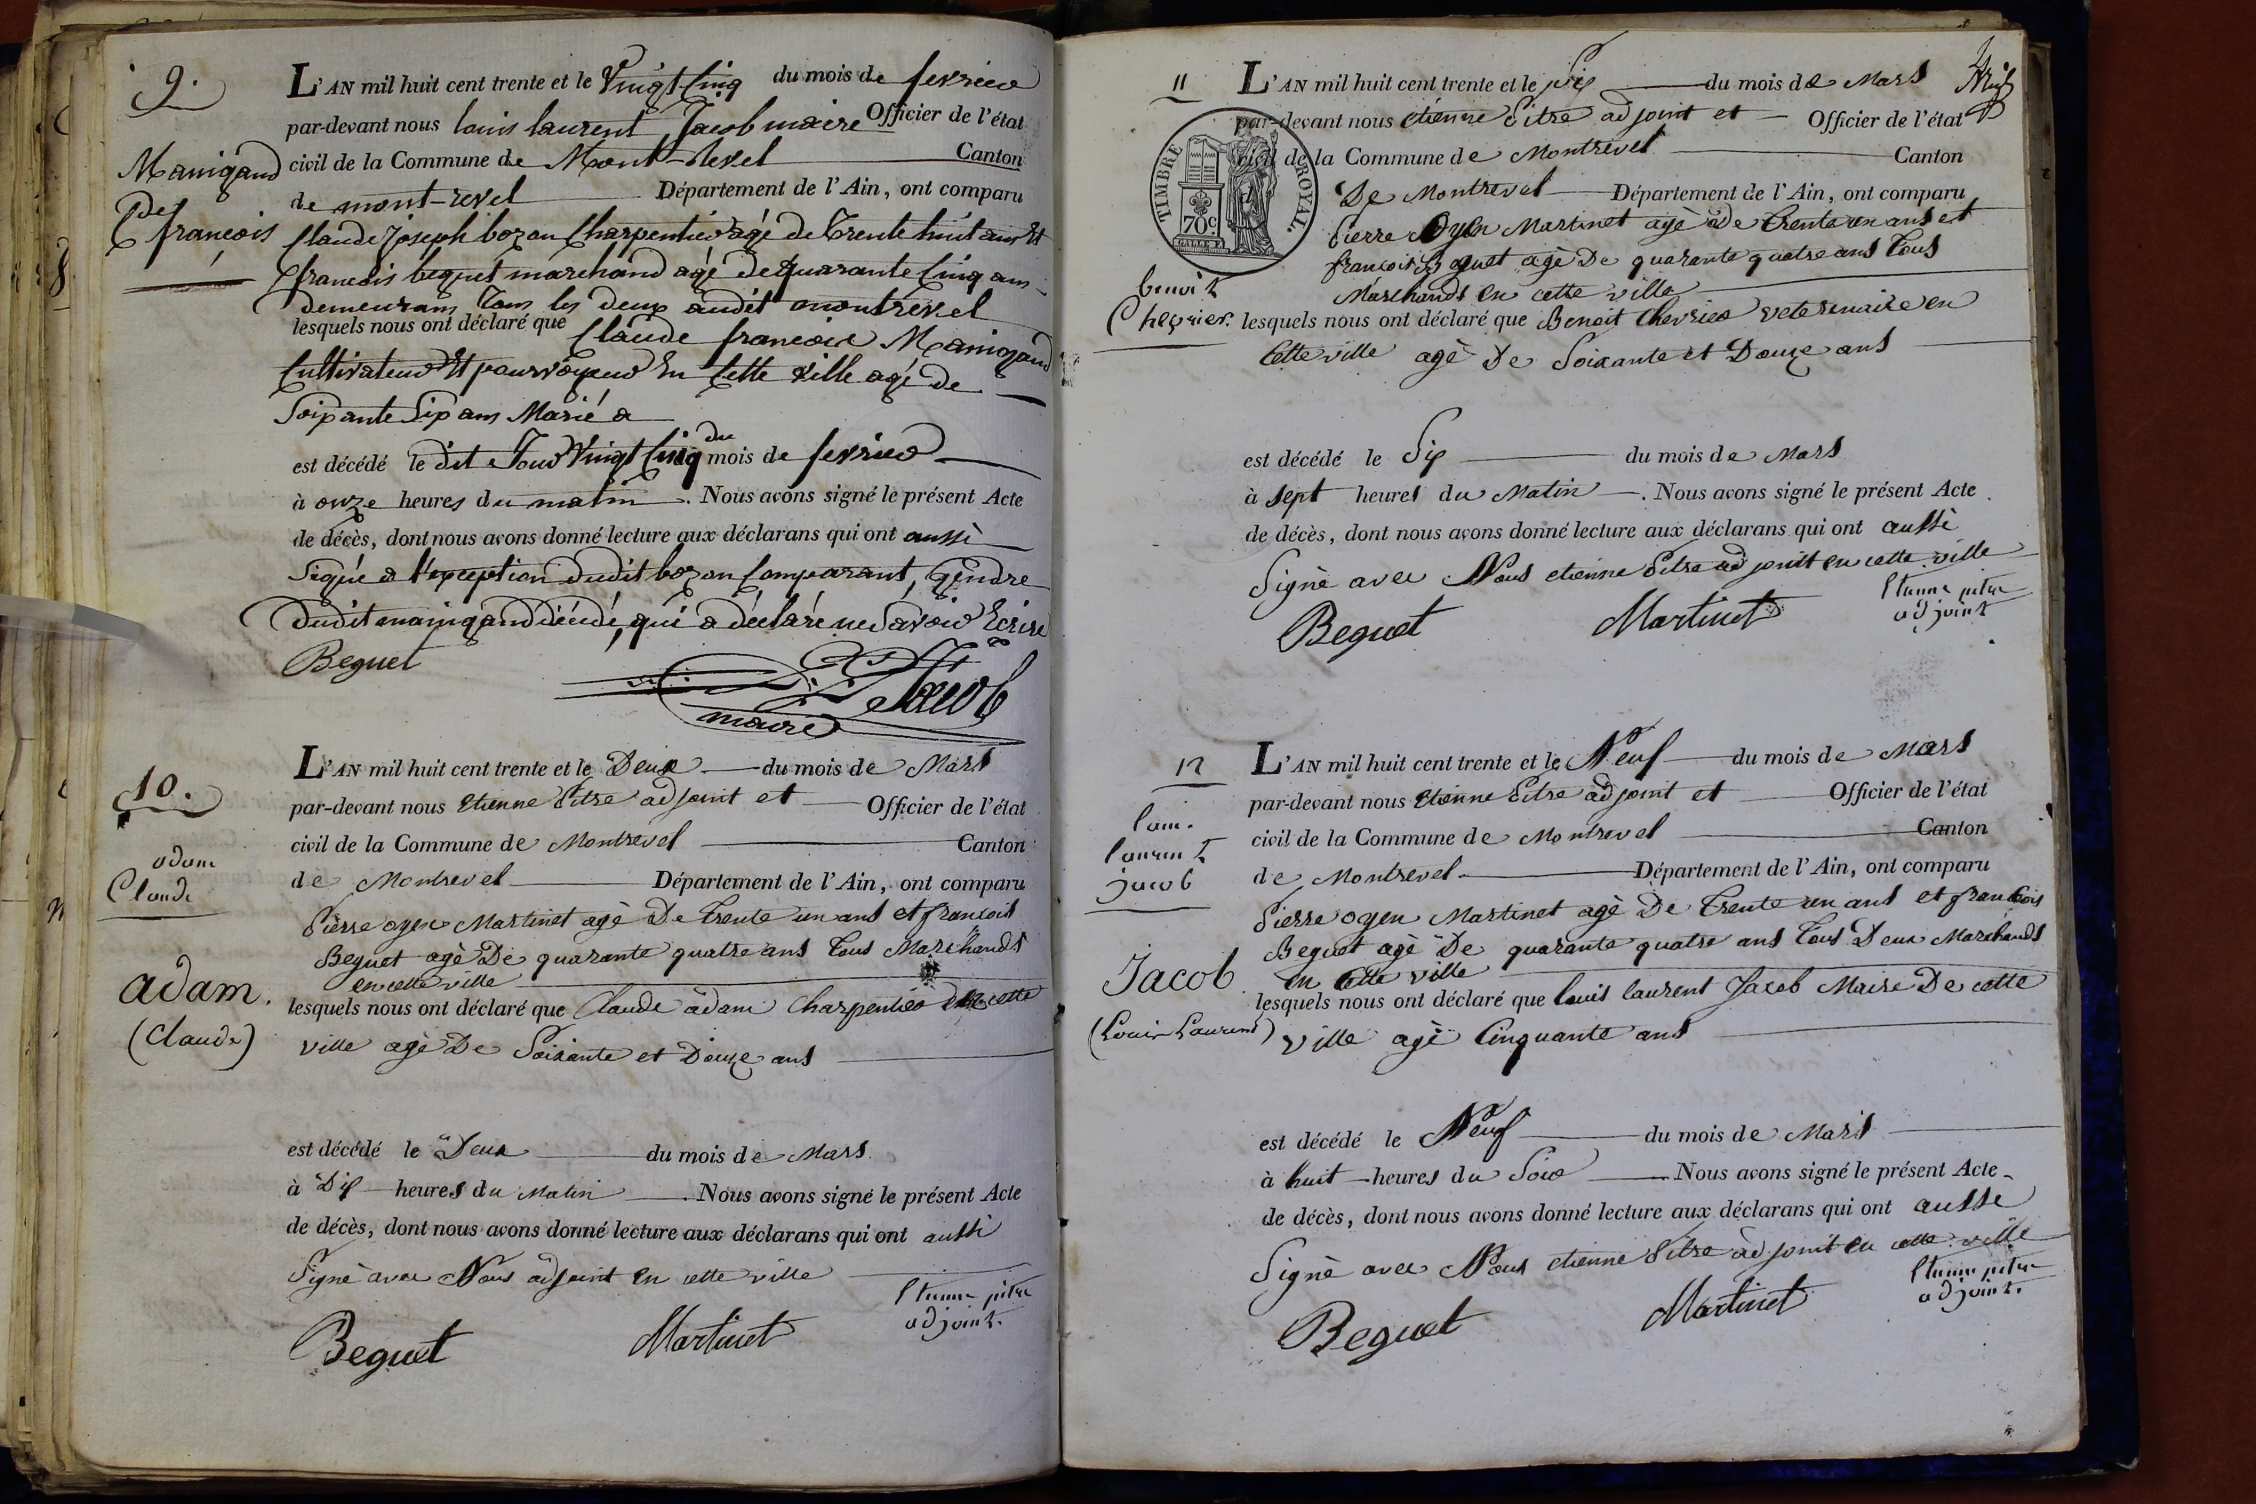 9.
Manigand
de
françois
L'AN mil huit cent trente et le Vingt Cinq du mois de fevrier
par-devant nous louis laurent Jacob maire Officier de l'état
civil de la Commune de Mont-revel Canton
de mont-revel Département de l'Ain, ont comparu
Claude Joseph bozon Charpentier agé de Trente huit ans Et
françois béquet marchand agé de quarante Cinq ans
demeurans Tous les deux audit montrevel
lesquels nous ont déclaré que Claude francois Manigand
Cultivateur Et pourvoyeur En Cette ville agé de
Soixante Six ans Marié a
est décédé le dit Jour Vingt Cinq du mois de fevrier
à onze heures du matin. Nous avons signé le présent Acte
de décès, dont nous avons donné lecture aux déclarans qui ont aussi
Signé a l'exception dudit bozon Comparant, Gendre
dudit manigand décédé, qui a déclaré ne savoir Ecrire
Beguet
Jacob
maire
10.
adam
Claude
adam.
(Claude)
L'AN mil huit cent trente et le Deux du mois de Mars
par-devant nous Etienne Pitre adjoint et Officier de l'état
civil de la Commune de Montrevel Canton
de Montrevel Département de l'Ain, ont comparu
Pierre oyen Martinet agè De Trente un ans et françois
Beguet agè De quarante quatre ans Tous Marchands
en cette ville
lesquels nous ont déclaré que Claude adam Charpentier cette
ville agè De Soixante et Douze ans
est décédé le Deux du mois de Mars
à Dix heures du Matin. Nous avons signé le présent Acte
de décès, dont nous avons donné lecture aux déclarans qui ont aussi
Signè avec Nous adjoint En cette ville
Etienne pitre
adjoint.
Beguet Martinet
11
TIMBRE ROYAL.
70c.
benoit
Chevrier.
L'AN mil huit cent trente et le Six du mois de Mars
par-devant nous etienne Pitre adjoint et Officier de l'état
civil de la Commune de Montrevel Canton
De Montrevel Département de l'Ain, ont comparu
Pierre Oyen Martinet agè De Trente un ans et
françois Beguet agè De quarante quatre ans Tous
Marchands en cette ville
lesquels nous ont déclaré que Benoit Chevrier veterinaire en
Cette ville agè De Soixante et Douze ans
est décédé le Six du mois de Mars
à sept heures du Matin. Nous avons signé le présent Acte
de décès, dont nous avons donné lecture aux déclarans qui ont aussi
Signè avec Nous etienne Pitre adjoint en cette ville
Etienne pitre
adjoint
Beguet Martinet
12
louis
laurent
jacob
Jacob
(Louis Laurent)
L'AN mil huit cent trente et le Neuf du mois de Mars
par-devant nous Etienne Pitre adjoint et Officier de l'état
civil de la Commune de Montrevel Canton
de Montrevel Département de l'Ain, ont comparu
Pierre oyen Martinet agè De Trente un ans et françois
Beguet agè De quarante quatre ans Tous Deux Marchands
En Cette ville
lesquels nous ont déclaré que louis laurent Jacob Maire De cette
ville agè Cinquante ans
est décédé le Neuf du mois de Mars
à huit heures du Soir Nous avons signé le présent Acte
de décès, dont nous avons donné lecture aux déclarans qui ont aussi
Signè avec Nous etienne Pitre adjoint en cette ville
Etienne pitre
adjoint.
Beguet Martinet